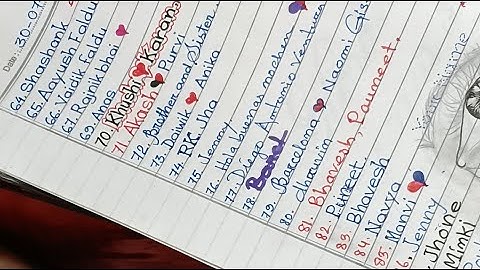 Date: 30-07
64. Shashank
65. Aayush Faldu
66. Vaidik faldu
67. Rajnik bhai
69. Anas
70. Khushi Karan
71. Akash Purvi
72. Brother and Sister
73. Daiwik Anika
74. RK Jha
75. Jenny
76. Hola buenas
77. Diego Antonio
78. Band
79. Barcelona Naomi
80.
81. Bhavesh, Pavneet.
82. Puneet
83. Bhavesh
84. Navya
85. Manvi
6. Jenny
Jhone
Mimki